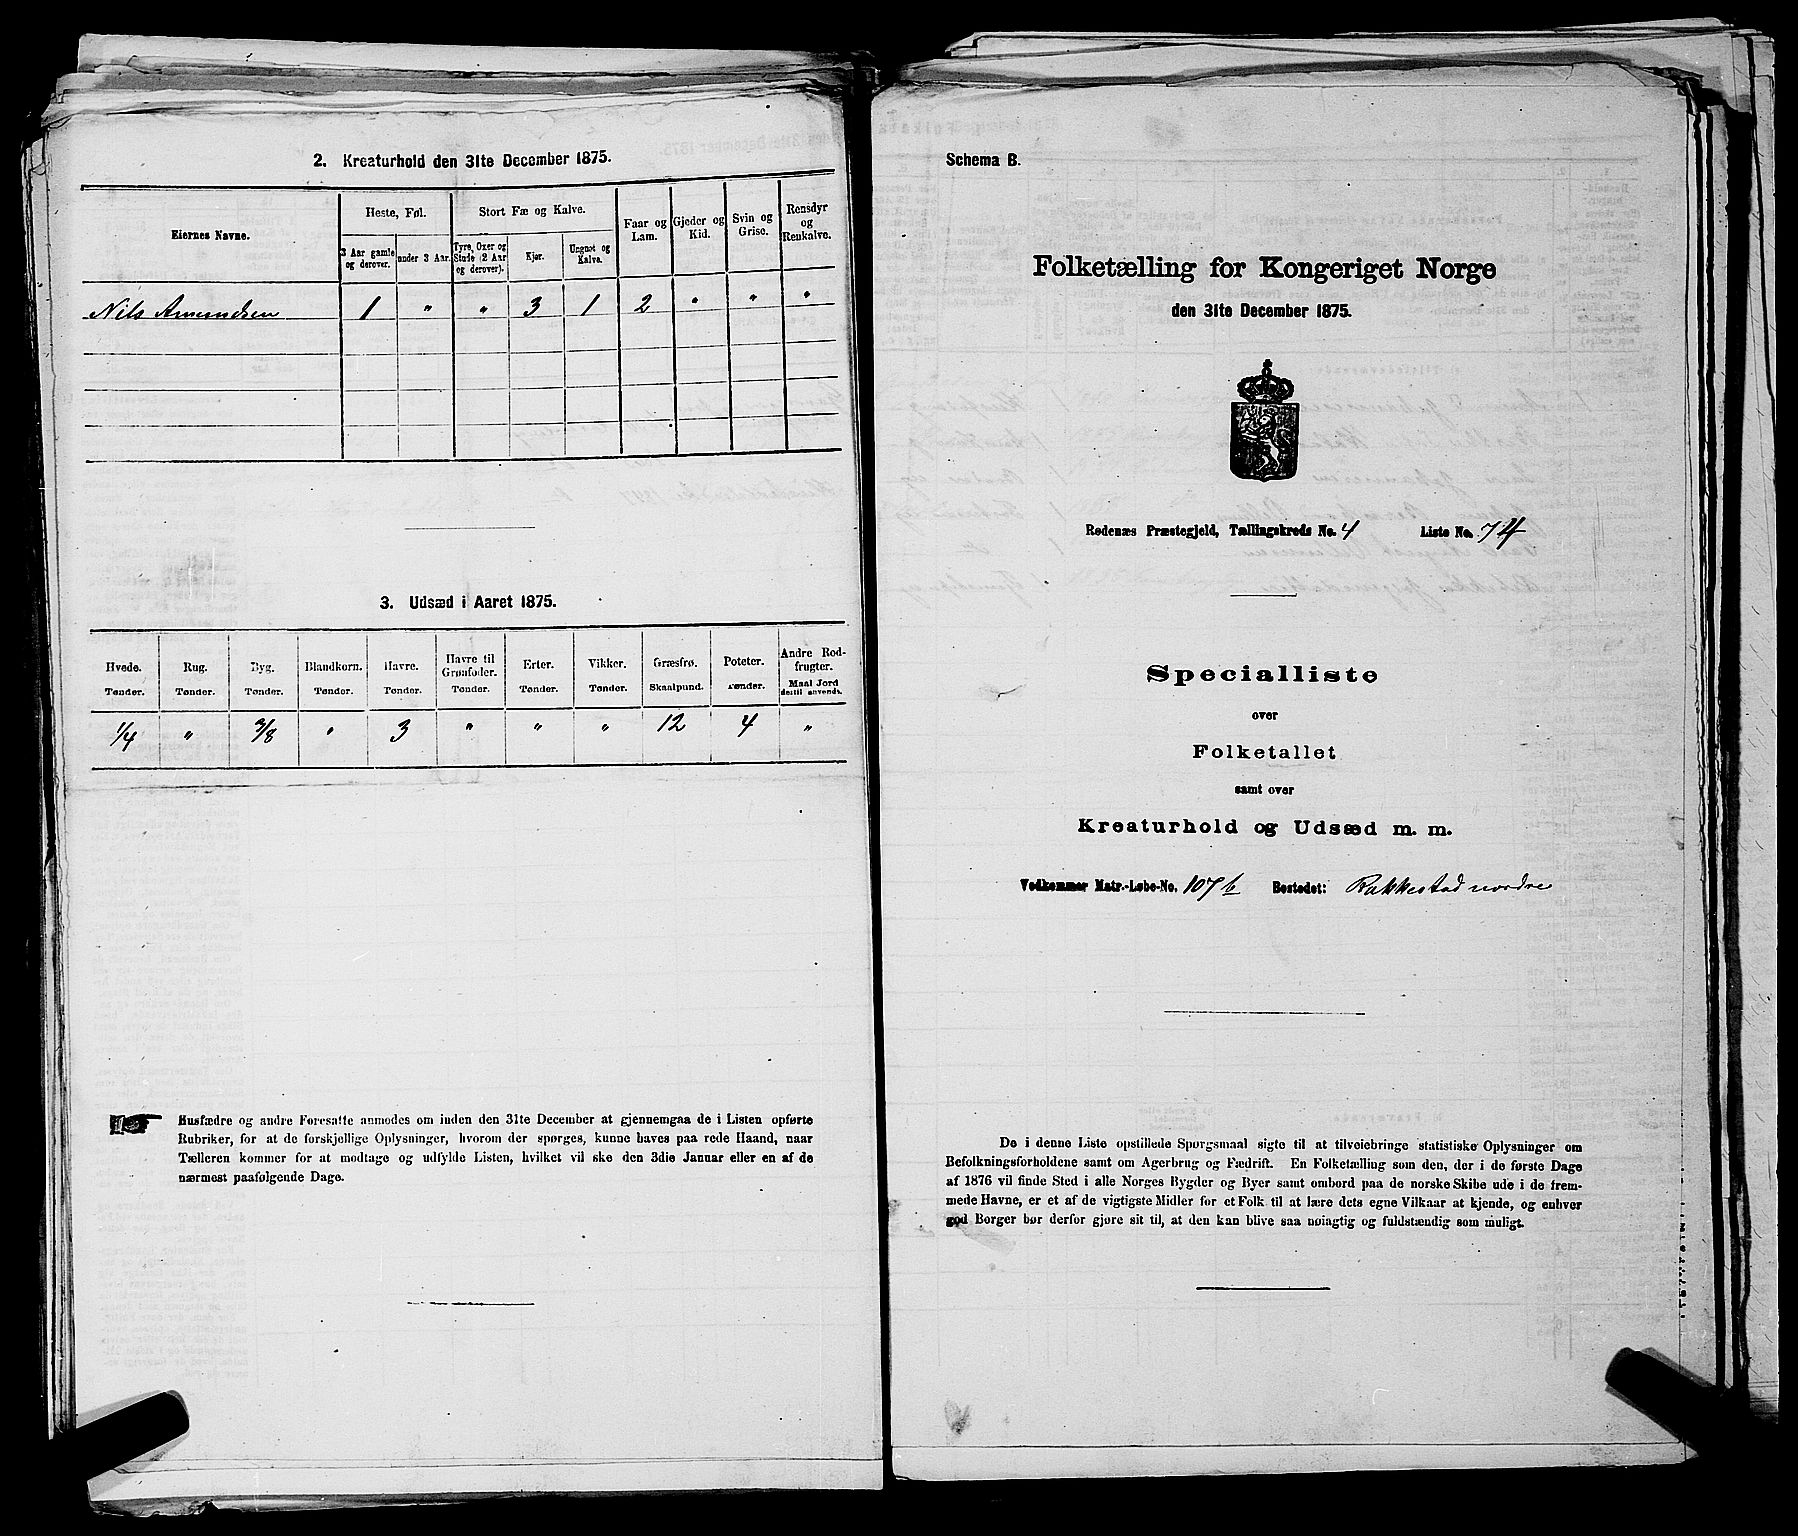 2. Kreaturhold den 31te December 1875.
Eiernes Navne.
Heste, Føl.
3 Aar gamle og derover.
under 3 Aar.
Stort Fæ og Kalve.
Tyre, Oxer og Stude (2 Aar og derover).
Kjør.
Ungnøt og Kalve.
Faar og Lam.
Gjeder og Kid.
Svin og Grise.
Rensdyr og Renkalve.
Nils Amundsen 1 " " 3 1 2 " " "
3. Udsæd i Aaret 1875.
Hvede. Rug. Byg. Blandkorn. Havre. Havre til Grønfoder. Erter. Vikker. Græsfrø. Poteter. Andre Rodfrugter.
Tønder. Tønder. Tønder. Tønder. Tønder. Tønder. Tønder. Tønder. Skaalpund. Tønder. Maal Jord dertil anvendt.
1/4 " 3/8 " 3 " " " 12 4 "
Husfædre og andre Foresatte anmodes om inden den 31te December at gjennemgaa de i Listen opførte
Rubriker, for at de forskjellige Oplysninger, hvorom der spørges, kunne haves paa rede Haand, naar
Tælleren kommer for at modtage og udfylde Listen, hvilket vil ske den 3die Januar eller en af de
nærmest paafølgende Dage.
Schema B.
Folketælling for Kongeriget Norge
den 31te December 1875.
Rødenæs Præstegjeld, Tællingskreds No. 4 Liste No. 74
Specialliste
over
Folketallet
samt over
Kreaturhold og Udsæd m. m.
Vedkommer Matr.-Løbe-No. 107b Bostedet: Rakkestad nordre
De i denne Liste opstillede Spørgsmaal sigte til at tilveiebringe statistiske Oplysninger om
Befolkningsforholdene samt om Agerbrug og Fædrift. En Folketælling som den, der i de første Dage
af 1876 vil finde Sted i alle Norges Bygder og Byer samt ombord paa de norske Skibe ude i de frem-
mede Havne, er et af de vigtigste Midler for et Folk til at lære dets egne Vilkaar at kjende, og enhver
god Borger bør derfor gjøre sit til, at den kan blive saa nøiagtig og fuldstændig som muligt.